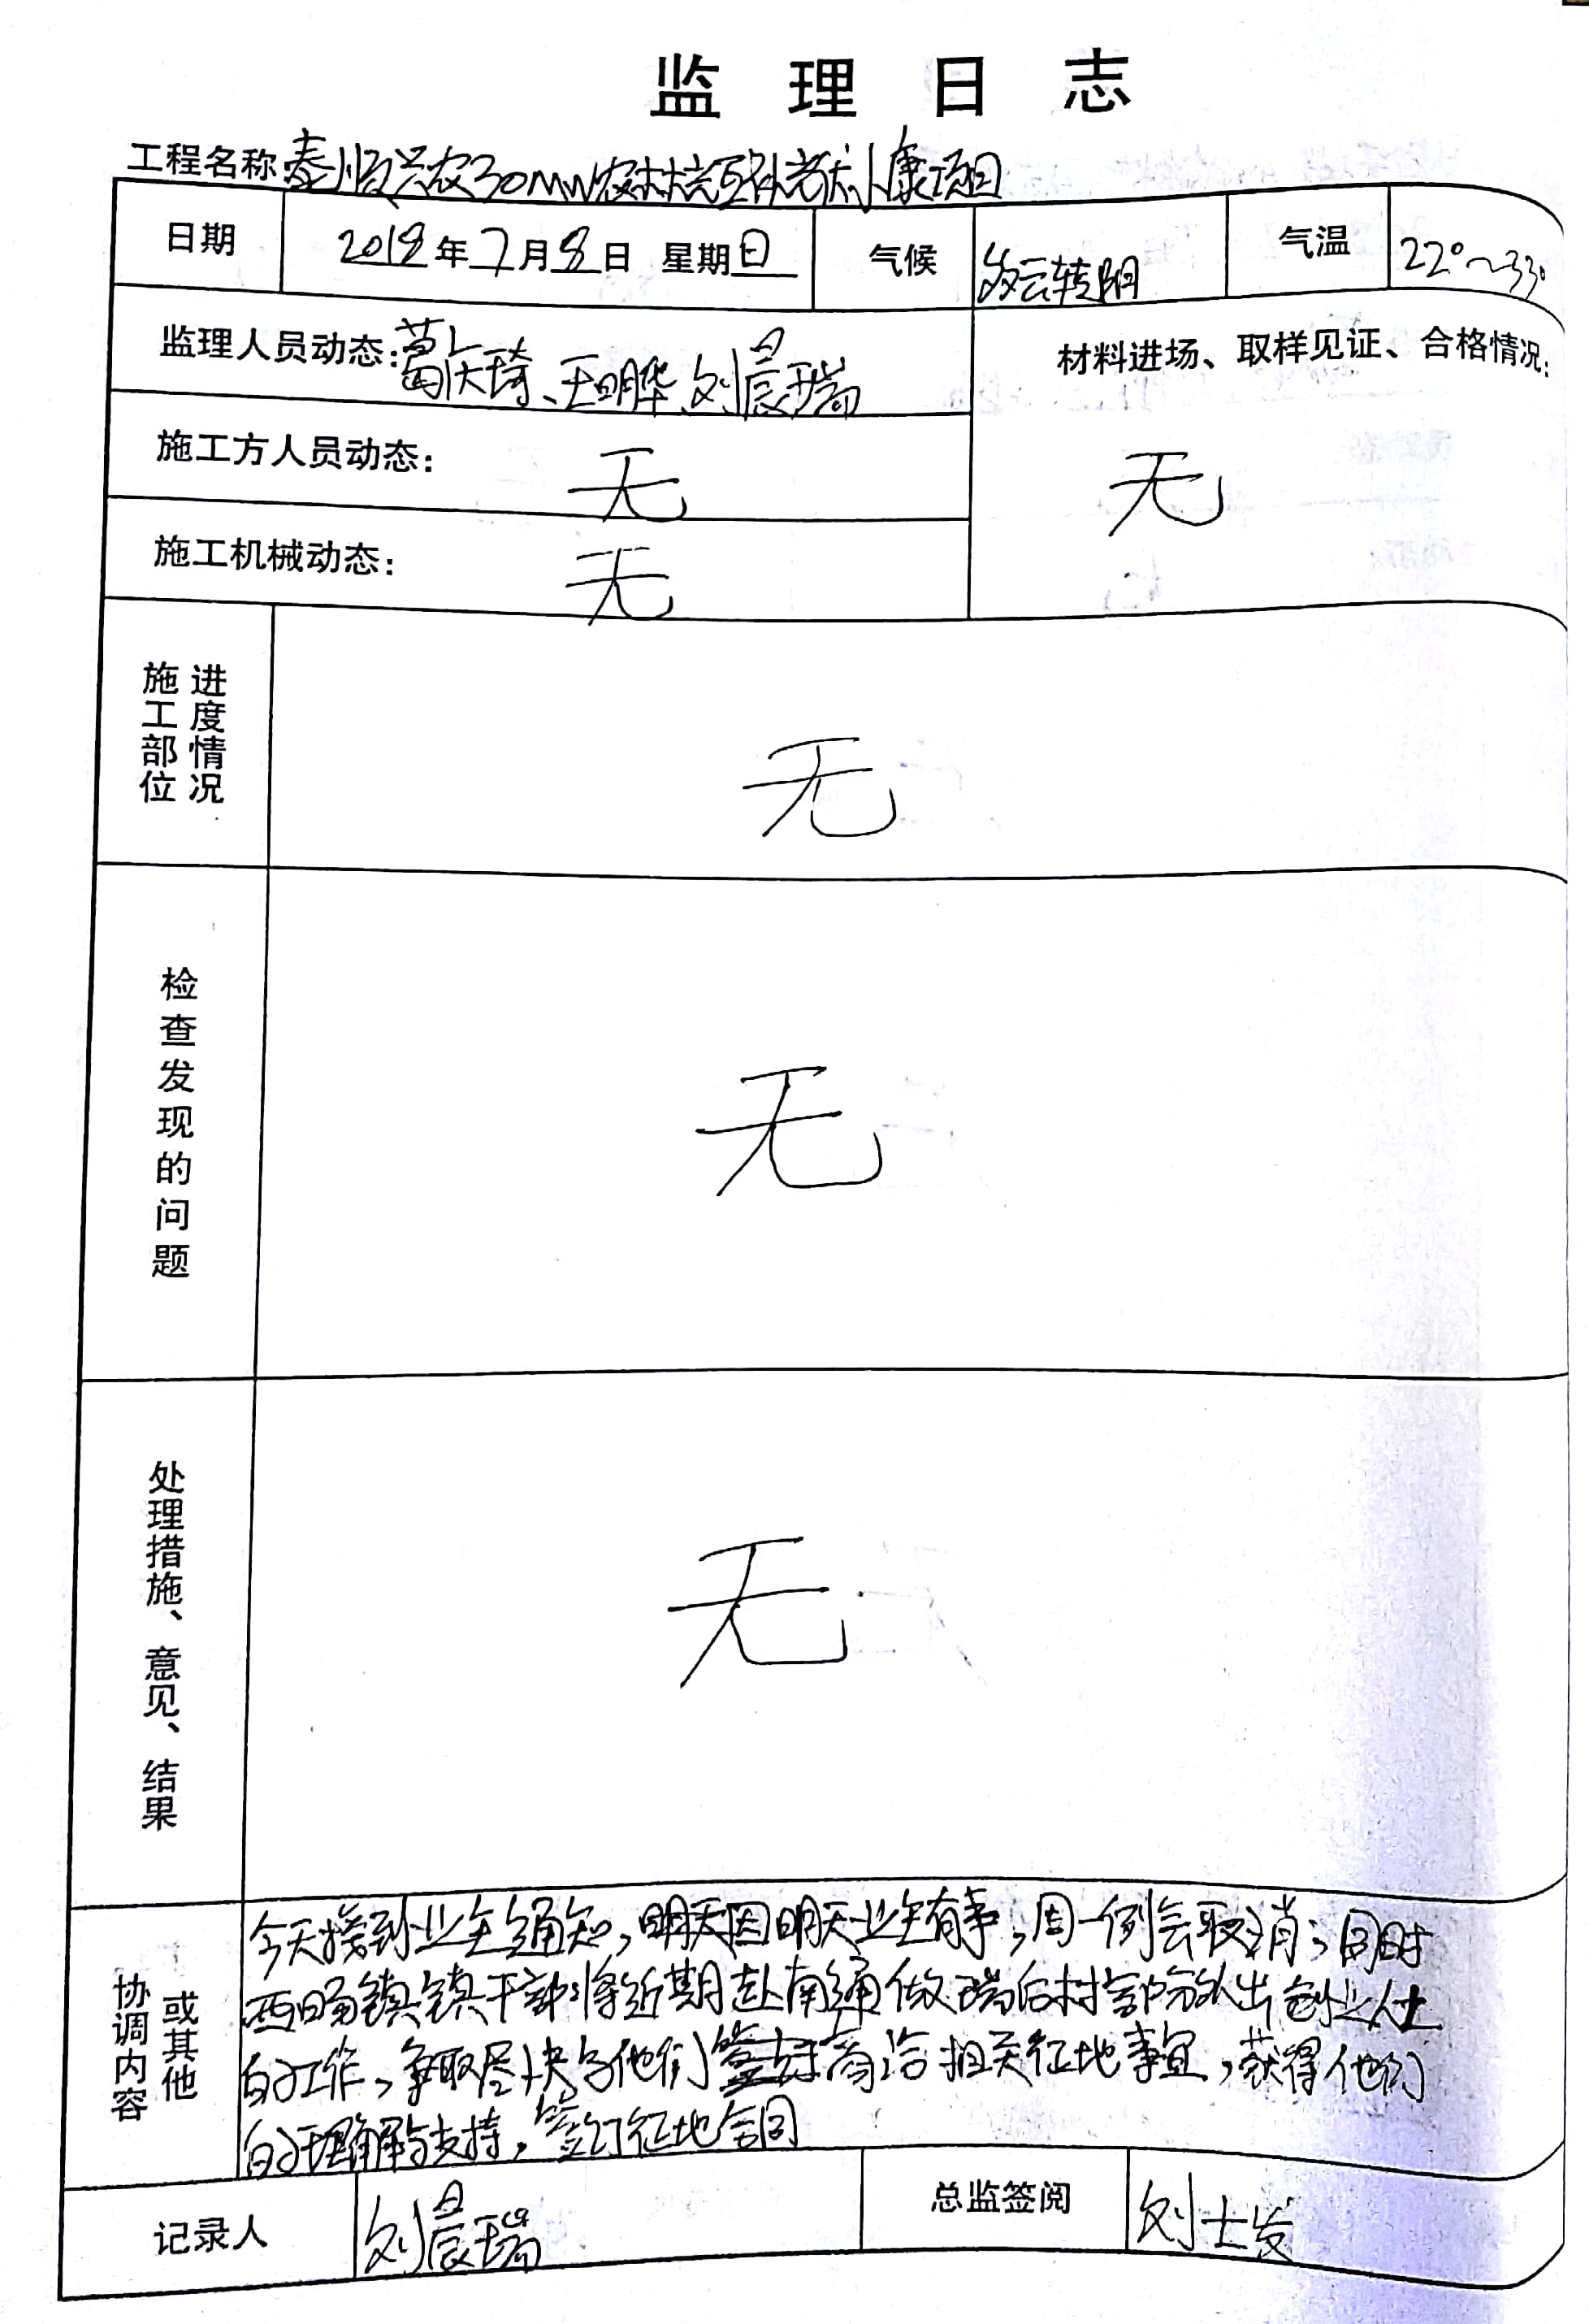 监理日志
工程名称 泰顺兴农30MW农林光互补光伏小康项目
日期 2018年7月8日 星期日 气候 多云转阴 气温 22°~33°
监理人员动态: 葛庆琦、王明华、刘晨瑞 材料进场、取样见证、合格情况:
施工方人员动态: 无 无
施工机械动态: 无
施工部位 进度情况 无
检查发现的问题 无
处理措施、意见、结果 无
协调内容 或其他
今天接到业主通知,明天因明天业主有事,周一例会取消;同时
西旸镇镇干部将近期赴南通做瑞后村部分外出创业人士
的工作,争取尽快与他们商洽相关征地事宜,获得他们
的理解与支持,签订征地合同
记录人 刘晨瑞 总监签阅 刘士发